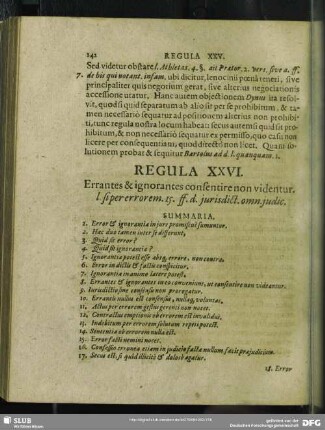 242 REGULA XXV.
Sed videtur obstare l. Athletas. 4. §. ait Prætor. 2. vers. sive a. ff.
7. de his qui notant. infam. ubi dicitur, lenocinii pœnâ teneri, sive
principaliter quis negotium gerat, sive alterius negociationis
accessione utatur. Hanc autem objectionem Dynus ita resol-
vit, quod si quid separatum ab alio sit per se prohibitum, & ta-
men necessariò sequatur ad positionem alterius non prohibi-
ti, tunc regula nostra locum habeat: secus autem si quid sit pro-
hibitum, & non necessariò sequatur ex permisso, quo casu non
licere per consequentiam, quod directò non licet. Quam so-
lutionem probat & sequitur Bartolus ad d. l. quanquam. 1.
REGULA XXVI.
Errantes & ignorantes consentire non videntur.
l. si per errorem. 15. ff. d. jurisdict. omn. judic.
SUMMARIA.
1. Error & ignorantia in jure promiscuè sumuntur.
2. Hæc duo tamen inter se differunt.
3. Quid sit error?
4. Quid sit ignorantia?
5. Ignorantia potest esse absq. errore, non contra.
6. Error in dictis & factis consistit.
7. Ignorantia in animo latere potest.
8. Errantes & ignorantes in eo conveniunt, ut consentire non videantur.
9. Jurisdictio sine consensu non prorogatur.
10. Errantis nullus est consensus, nullaq. voluntas.
11. Actus per errorem gestus gerenti non nocet.
12. Contractus emptionis ob errorem est invalidus.
13. Indebitum per errorem solutum repeti potest.
14. Novatio ob errorem nulla est.
15. Error facti nemini nocet.
16. Confessio erronea etiam in judicio facta nullum facit præjudicium.
17. Secus est, si quid illicitè & dolosè agatur.
18. Error
SLUB
Wir führen Wissen.
gefördert von der
Deutschen Forschungsgemeinschaft
DFG